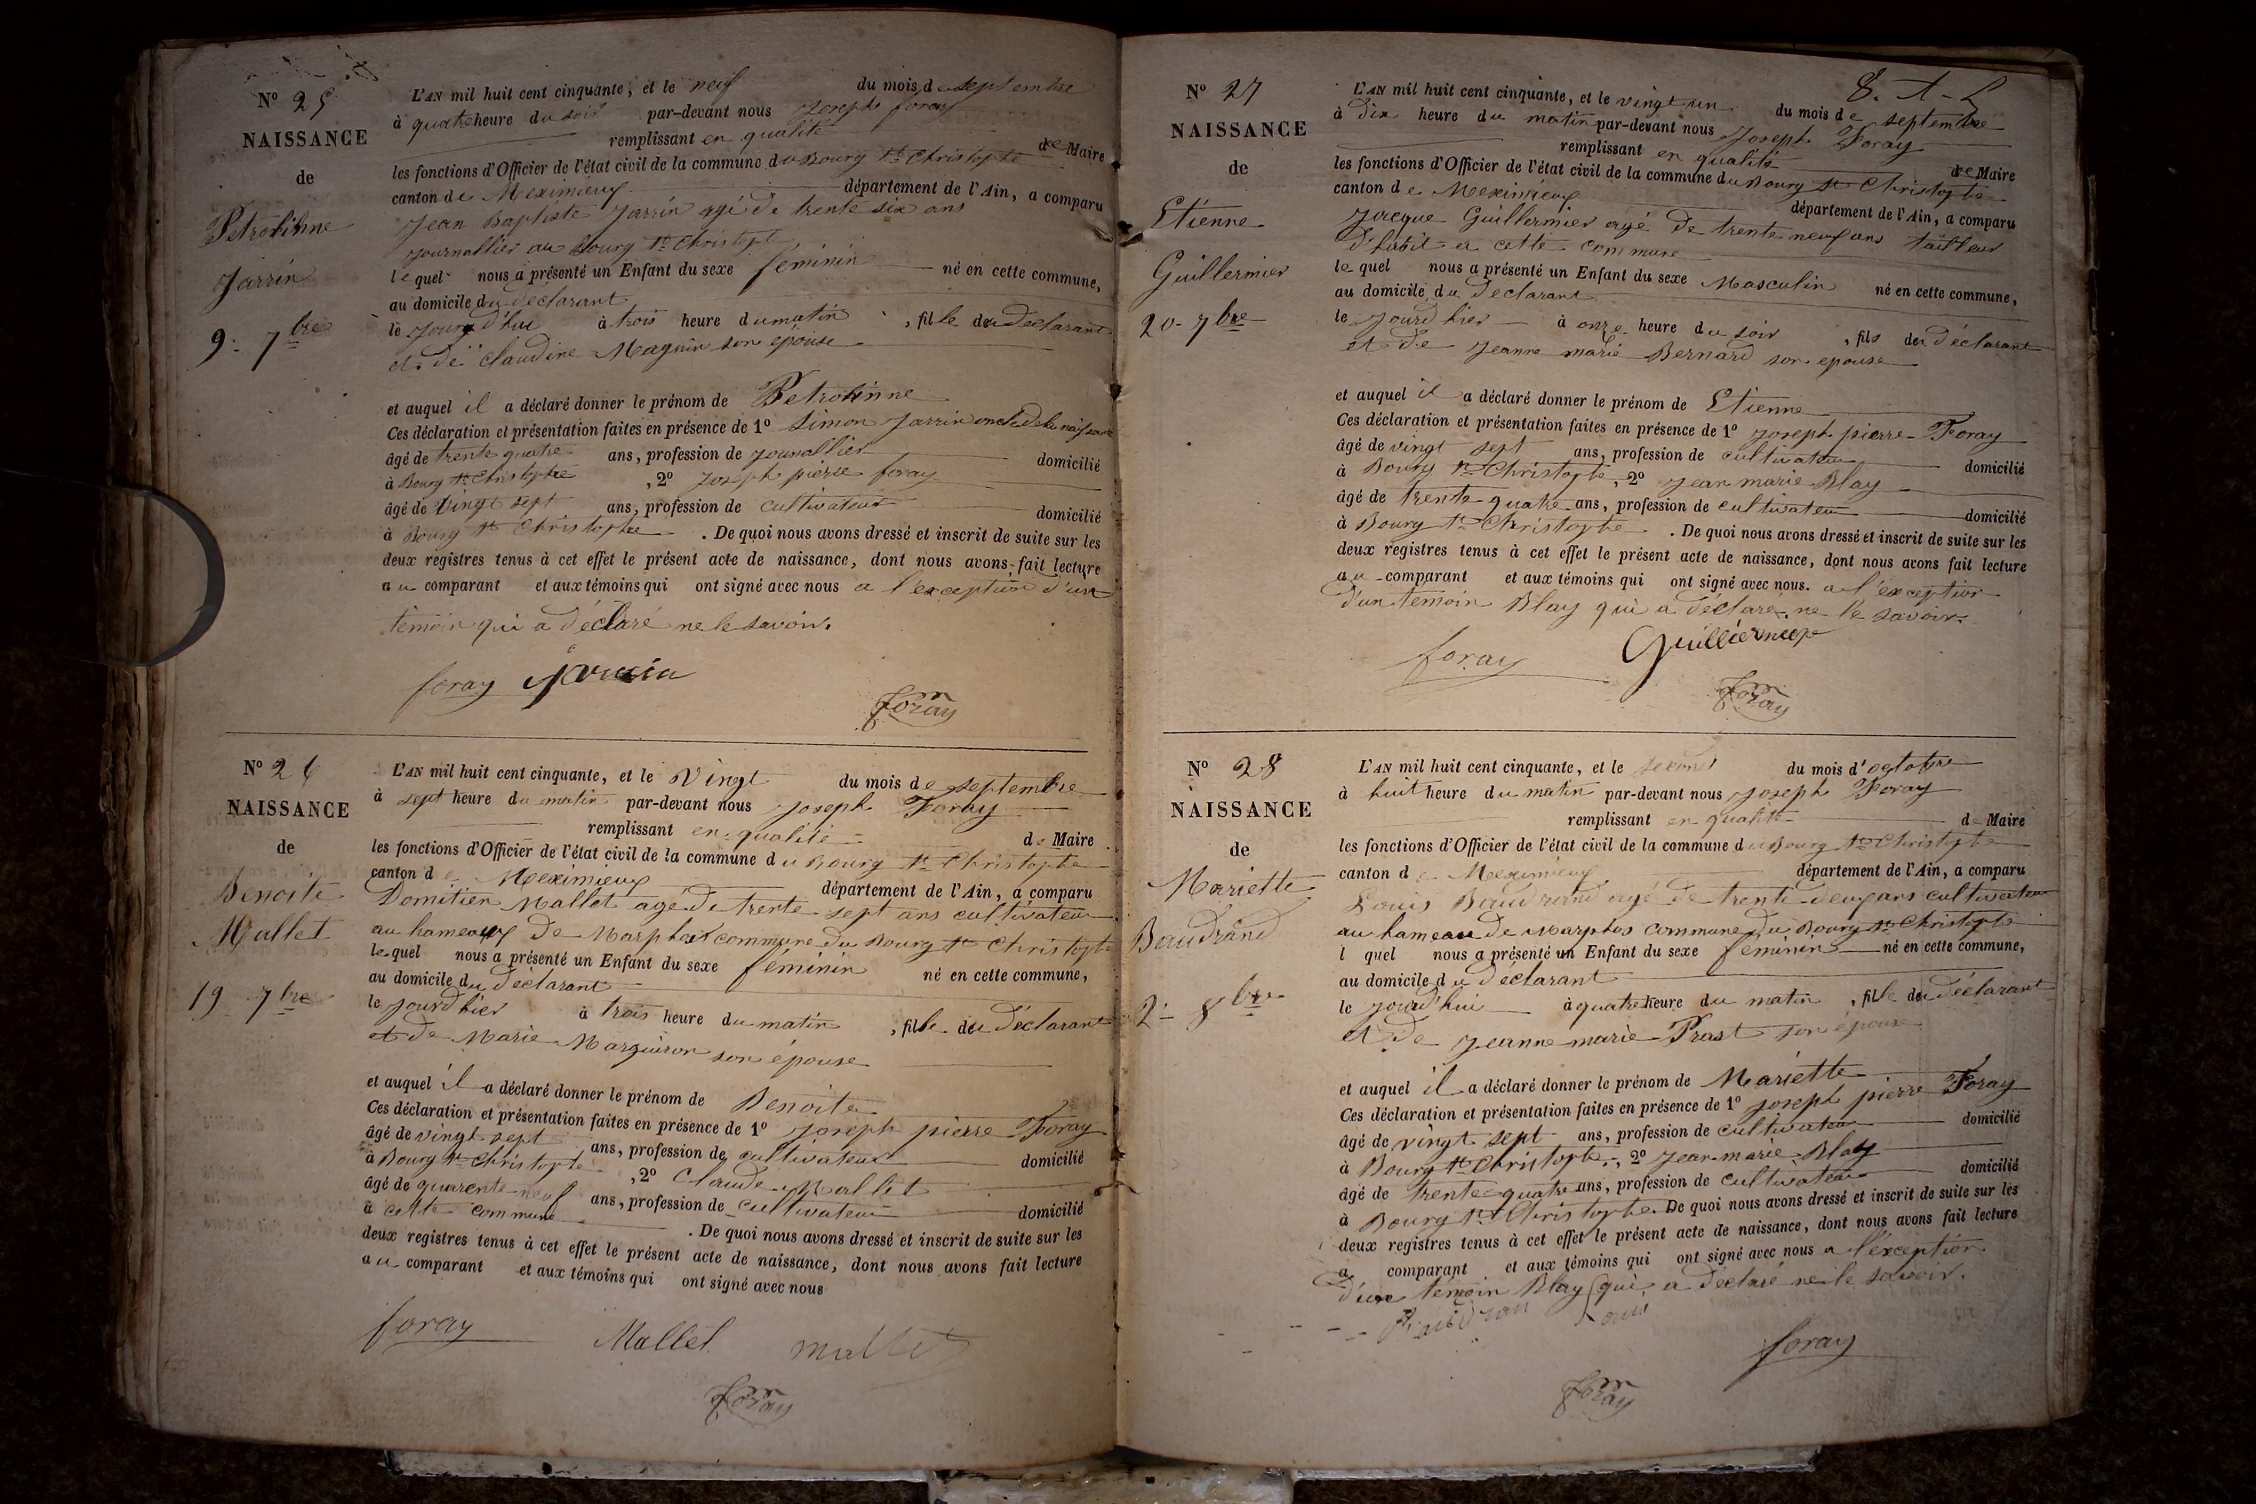 N° 25
NAISSANCE
de
Petrolinne
Jarrin
9. 7bre
L'AN mil huit cent cinquante, et le neuf du mois de septembre
à quatre heure du soir par-devant nous Joseph foray
remplissant en qualité de Maire
les fonctions d'Officier de l'état civil de la commune du Bourg St Christophe
canton de Meximieux département de l'Ain, a comparu
Jean Baptiste Jarrin agé de trente six ans
journallier au Bourg St Christophe
lequel nous a présenté un Enfant du sexe féminin né en cette commune,
au domicile du déclarant
le jourd'hui à trois heure du matin, fille du déclarant
et de claudine Maguin son épouse
et auquel il a déclaré donner le prénom de Petrolinne
Ces déclaration et présentation faites en présence de 1° Simon Jarrin oncle de la
âgé de trente quatre ans, profession de journallier domicilié
à Bourg St Christophe, 2° Joseph pierre foray
âgé de vingt sept ans, profession de cultivateur domicilié
à Bourg St Christophe. De quoi nous avons dressé et inscrit de suite sur les
deux registres tenus à cet effet le présent acte de naissance, dont nous avons fait lecture
au comparant et aux témoins qui ont signé avec nous a l'exception d'un
témoin qui a déclaré ne le savoir.
foray
foray
N° 26
NAISSANCE
de
Benoite
Mallet
19 7bre
L'AN mil huit cent cinquante, et le vingt du mois de septembre
à sept heure du matin par-devant nous Joseph Foray
remplissant en qualité de Maire
les fonctions d'Officier de l'état civil de la commune du Bourg St Christophe
canton de Meximieux département de l'Ain, a comparu
Domitien Mallet agé de trente sept ans cultivateur
au hameaux de Marphoz commune du Bourg St Christophe
lequel nous a présenté un Enfant du sexe féminin né en cette commune,
au domicile du déclarant
le jourd'hier à trois heure du matin, fille du déclarant
et de Marie Marguiron son épouse
et auquel il a déclaré donner le prénom de Benoite
Ces déclaration et présentation faites en présence de 1° Joseph pierre Foray
âgé de vingt sept ans, profession de cultivateur domicilié
à Bourg St Christophe, 2° Claude Mallet
âgé de quarente neuf ans, profession de cultivateur domicilié
à cette commune. De quoi nous avons dressé et inscrit de suite sur les
deux registres tenus à cet effet le présent acte de naissance, dont nous avons fait lecture
au comparant et aux témoins qui ont signé avec nous
foray Mallet mallet
foray
N° 27
NAISSANCE
de
Etienne
Guillermier
20. 7bre
L'AN mil huit cent cinquante, et le vingt un du mois de septembre
à dix heure du matin par-devant nous Joseph Foray
remplissant en qualité de Maire
les fonctions d'Officier de l'état civil de la commune du Bourg St Christophe
canton de Meximieux département de l'Ain, a comparu
Jacque Guillermier agé de trente neuf ans tailleur
d'habit a cette commune
lequel nous a présenté un Enfant du sexe Masculin né en cette commune,
au domicile du déclarant
le jourd'hier à onze heure du soir, fils du déclarant
et de Jeanne marie Bernard son épouse
et auquel il a déclaré donner le prénom de Etienne
Ces déclaration et présentation faites en présence de 1° Joseph pierre Foray
âgé de vingt sept ans, profession de cultivateur domicilié
à Bourg St Christophe, 2° Jean marie Blay
âgé de trente quatre ans, profession de cultivateur domicilié
à Bourg St Christophe. De quoi nous avons dressé et inscrit de suite sur les
deux registres tenus à cet effet le présent acte de naissance, dont nous avons fait lecture
au comparant et aux témoins qui ont signé avec nous. a l'exception
d'un témoin Blay qui a déclaré ne le savoir.
foray Guilliermier
foray
N° 28
NAISSANCE
de
Mariette
Baudrand
2. 8bre
L'AN mil huit cent cinquante, et le second du mois d'octobre
à huit heure du matin par-devant nous Joseph Foray
remplissant en qualité de Maire
les fonctions d'Officier de l'état civil de la commune du Bourg St Christophe
canton de Meximieux département de l'Ain, a comparu
Louis Baudrand agé de trente deux ans cultivateur
au hameau de Marphos commune du Bourg St Christophe
l quel nous a présenté un Enfant du sexe féminin né en cette commune,
au domicile du déclarant
le jourd'hui à quatre heure du matin, fille du déclarant
et de Jeanne marie Prost son épouse
et auquel il a déclaré donner le prénom de Mariette
Ces déclaration et présentation faites en présence de 1° Joseph pierre Foray
âgé de vingt sept ans, profession de cultivateur domicilié
à Bourg St Christophe, 2° Jean marie Blay
âgé de trente quatre ans, profession de cultivateur domicilié
à Bourg St Christophe. De quoi nous avons dressé et inscrit de suite sur les
deux registres tenus à cet effet le présent acte de naissance, dont nous avons fait lecture
a comparant et aux témoins qui ont signé avec nous a l'exception
d'un témoin Blay qui a déclaré ne le savoir.
foray
foray